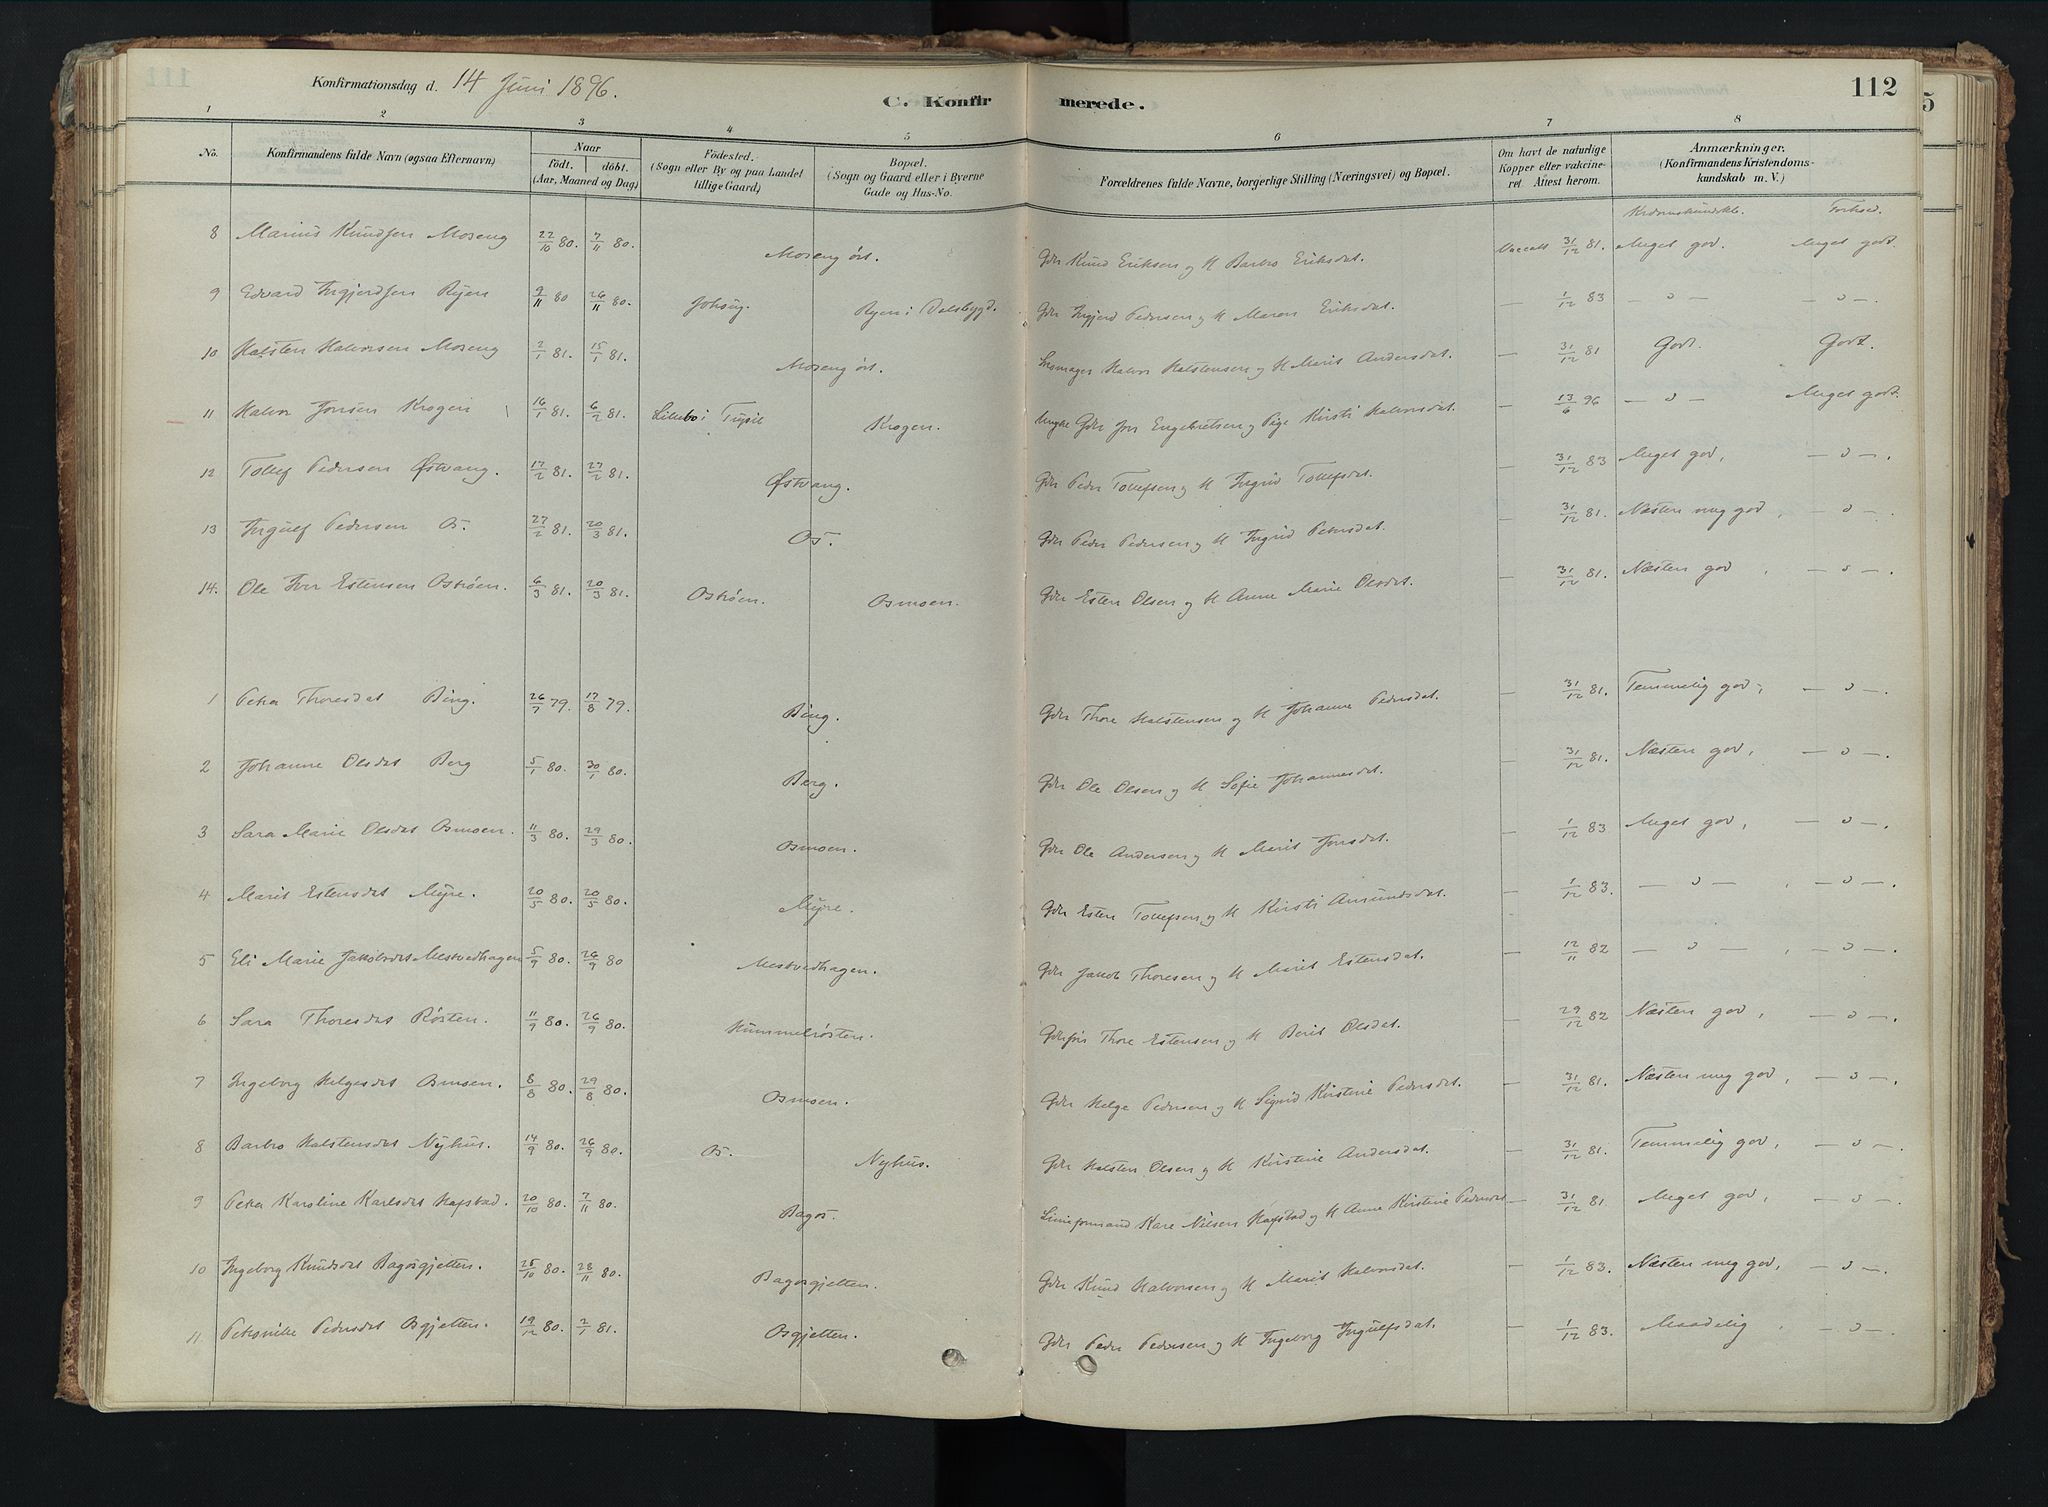 Konfirmationsdag d. 14 Juni 1896.
C. Konfirmerede.
112
1 2 3 4 5 6 7 8
No. Konfirmandens fulde Navn (ogsaa Efternavn) Naar født. døbt. (Aar, Maaned og Dag) Fødested. (Sogn eller By og paa Landet tillige Gaard) Bopæl. (Sogn og Gaard eller i Byerne Gade og Hus-No. Forældrenes fulde Navne, borgerlige Stilling (Næringsvei) og Bopæl. Om havt de naturlige Kopper eller vakcineret. Attest herom. Anmærkninger. (Konfirmandens Kristendomskundskab m. V.)
Krdomskundskb. Forhold.
8 Marius Knudsen Moseng 22/10 80. 7/11 80. Moseng øst. Gdr Knud Eriksen og H Barbro Eriksdat. Vaccatt 31/12 81. Meget god. Meget godt.
9 Edvard Ingjerdsen Ryen 9/11 80 26/11 80. Ryen i Dalsbygd. Gdr Ingjerd Pedersen og H Maren Eriksdat. — 1/12 83 — " — — " —.
10 Halsten Halvorsen Moseng 2/1 81. 15/1 81. Moseng øst. Halvor Halstensen og H Marit Andersdat. — 31/12 81 Godt. Godt.
11 Halvor Jonsen Krogen 16/1 81. 6/2 81. Lillebo i Tryssil Krogen. Ungkr Gdr Jon Engebretsen og Pige Kirsti Halvorsdat. — 13/6 96 — " — Meget godt.
12 Tollef Pedersen Østvang. 17/2 81. 27/2 81. Østvang. Gdr Peder Tollefsen og H Ingrid Tollefsdat. 31/12 83 Meget god, — " —.
13 Ingulf Pedersen Os. 27/2 81. 20/3 81. Os. Gdr Peder Pedersen og H Ingrid Pedersdat. — 31/12 81. Næsten meg god, — " —
14. Ole Iver Estensen Osmoen. 6/3 81. 20/3 81. Osmoen. Gdr Esten Olsen og H Anne Marie Olsdat. — 31/12 81. Næsten god, — " —
1 Petra Thoresdat Bing. 26/7 79. 17/8 79. Bing. Gdr Thore Halstensen og H Johanne Pedersdat. — 31/12 81. Temmelig god, — " —.
2 Johanne Olsdat Berg 5/1 80. 30/1 80. Berg. Gdr Ole Olsen og H Sofie Johannesdat. — 31/12 81. Næsten god, — " —.
3 Sara Marie Olsdat Osmoen. 11/3 80. 29/3 80. Osmoen. Gdr Ole Andersen og H Marit Jonsdat. — 1/12 83 Meget god, — " —.
4 Marit Estensdat Myre. 20/5 80. 20/5 80. Myre. Gdr Esten Tollefsen og H Kirsti Amundsdat. — 1/12 83. — " —, — " —.
5 Eli Marie Jakobsdat Mestvedhagen 5/9 80. 26/9 80 Mestvedhagen. Gdr Jakob Thoresen og H Marit Estensdat. — 12/11 82 — " —, — " —.
6 Sara Thoresdat Røsten. 11/9 80. 26/9 80. Hummelrøsten. Thore Estensen og H Berit Olsdat. — 29/12 82 Næsten god, — " —.
7 Ingeborg Helgesdat Osmoen. 8/8 80. 29/8 80. Osmoen. Gdr Helge Pedersen og H Sigrid Kirstine Pedersdat. — 31/12 81. Næsten meg god, — " —.
8 Barbro Halstensdat Nyhus. 14/9 80. 26/9 80. Os. Nyhus. Gdr Halsten Olsen og H Kirstine Andersdat. — 31/12 81. Temmelig god, — " —.
9 Petra Karoline Karlsdat Hafstad. 20/10 80. 7/11 80. Bagos. Linieformand Karl Nilsen Hafstad og H Anne Kirstine Pedersdat — 31/12 81 Meget god, — " —
10 Ingeborg Knudsdat Bagosgjelten. 25/10 80. 28/11 80. Bagosgjelten. Gdr Knud Halvorsen og H Marit Halvorsdat. — 1/12 83. Næsten meg god, — " —.
11. Pedersdat Osgjelten. 19/12 80. 2/1 81. Osgjelten. Gdr Peder Pedersen og H Ingeborg Ingulfsdat. — 1/12 83. Maadelig, — " —.